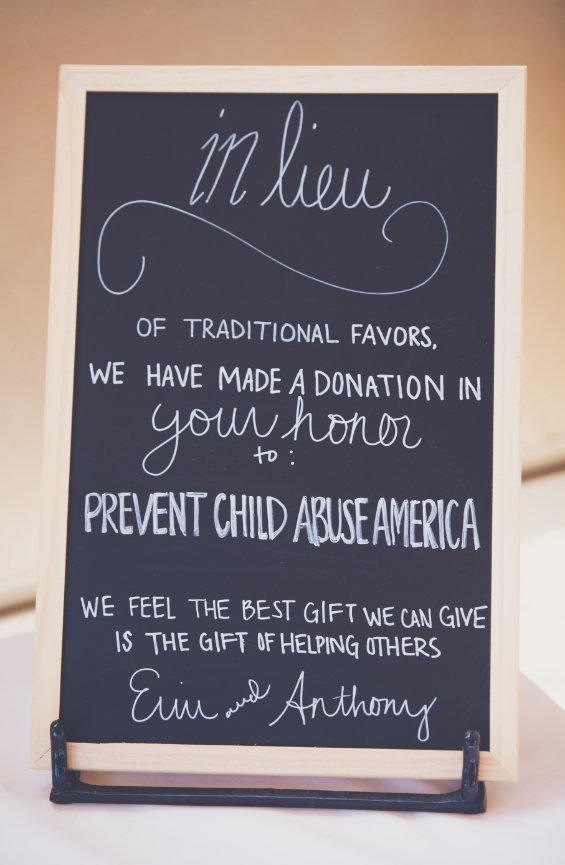 in lieu
OF TRADITIONAL FAVORS,
WE HAVE MADE A DONATION IN
your honor
to:
PREVENT CHILD ABUSE AMERICA
WE FEEL THE BEST GIFT WE CAN GIVE
IS THE GIFT OF HELPING OTHERS
Erin and Anthony